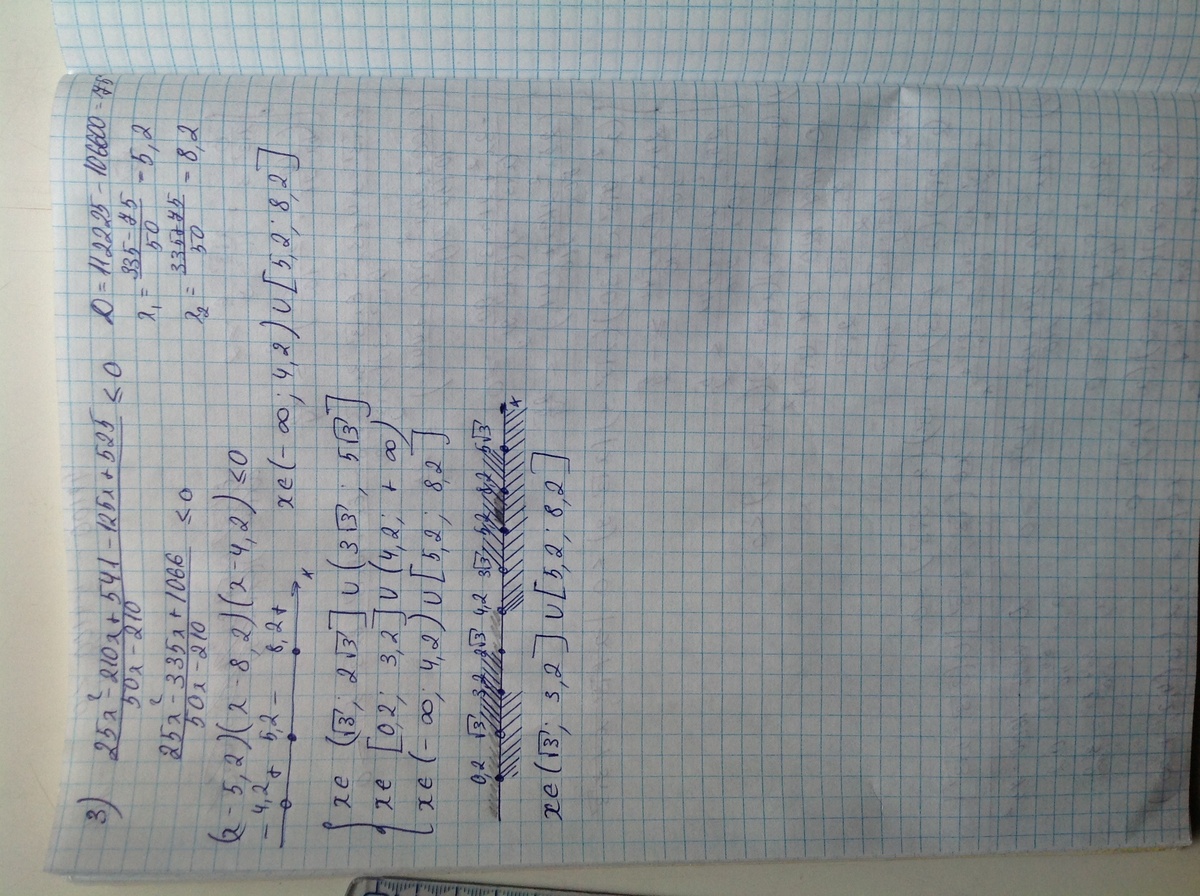 3) (25x² - 210x + 541 - 125x + 525)/(50x - 210) ≤ 0
D = 112225 - 106600 = 75
x₁ = (335 - 75)/50 = 5,2
(25x² - 335x + 1066)/(50x - 210) ≤ 0
x₂ = (335 + 75)/50 = 8,2
(x - 5,2)(x - 8,2)(x - 4,2) ≤ 0
- 4,2 + 5,2 - 8,2 + x
x∈(-∞; 4,2)∪[5,2; 8,2]
{ x∈(√3; 2√3]∪(3√3; 5√3]
x∈[0,2; 3,2]∪(4,2; +∞)
x∈(-∞; 4,2)∪[5,2; 8,2]
0,2 √3 3,2 2√3 4,2 3√3 5,2 8,2 5√3 x
x∈(√3; 3,2]∪[5,2; 8,2]